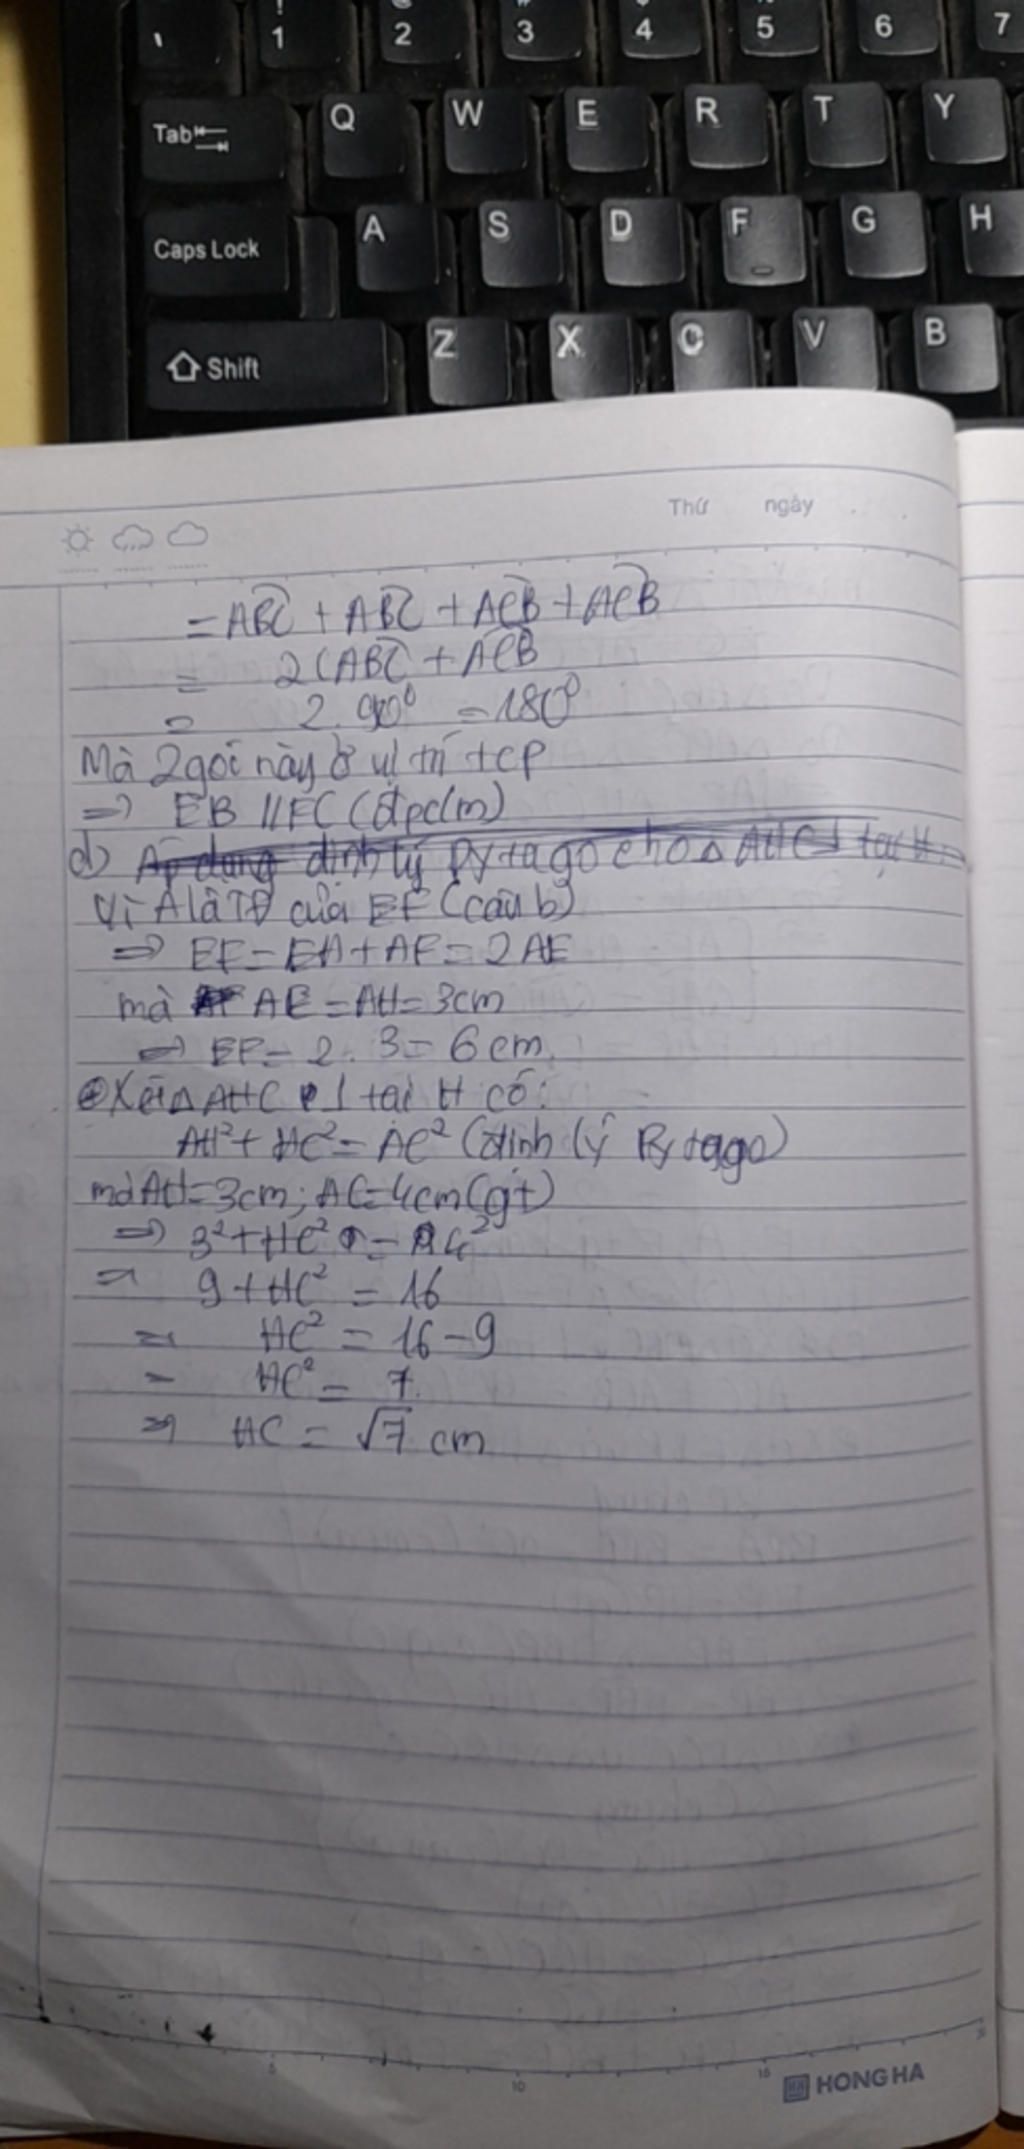 ! 1 2 3 4 5 6 7
Tab Q W E R T Y
Caps Lock A S D F G H
Shift Z X C V B
Thứ ngày
= ABC + ABC + ACB + ACB
= 2(ABC + ACB
= 2. 90⁰ = 180⁰
Mà 2 gói này ở vị trí tcp
=> EB // FC (đpc/m)
d) Áp dụng định lý Pytago cho Δ AHC ⊥ tại H
Vì A là TĐ của EF (câu b)
=> EF = EA + AF = 2AE
mà AE = AH = 3cm
=> EF = 2. 3 = 6cm
Xét Δ AHC ⊥ tại H có:
AH² + HC² = AC² (định lý Pytago)
mà AH = 3cm; AC = 4cm (gt)
=> 3² + HC² = 4²
= 9 + HC² = 16
= HC² = 16 - 9
= HC² = 7
=> HC = √7 cm
5 10 15 20
HONG HA